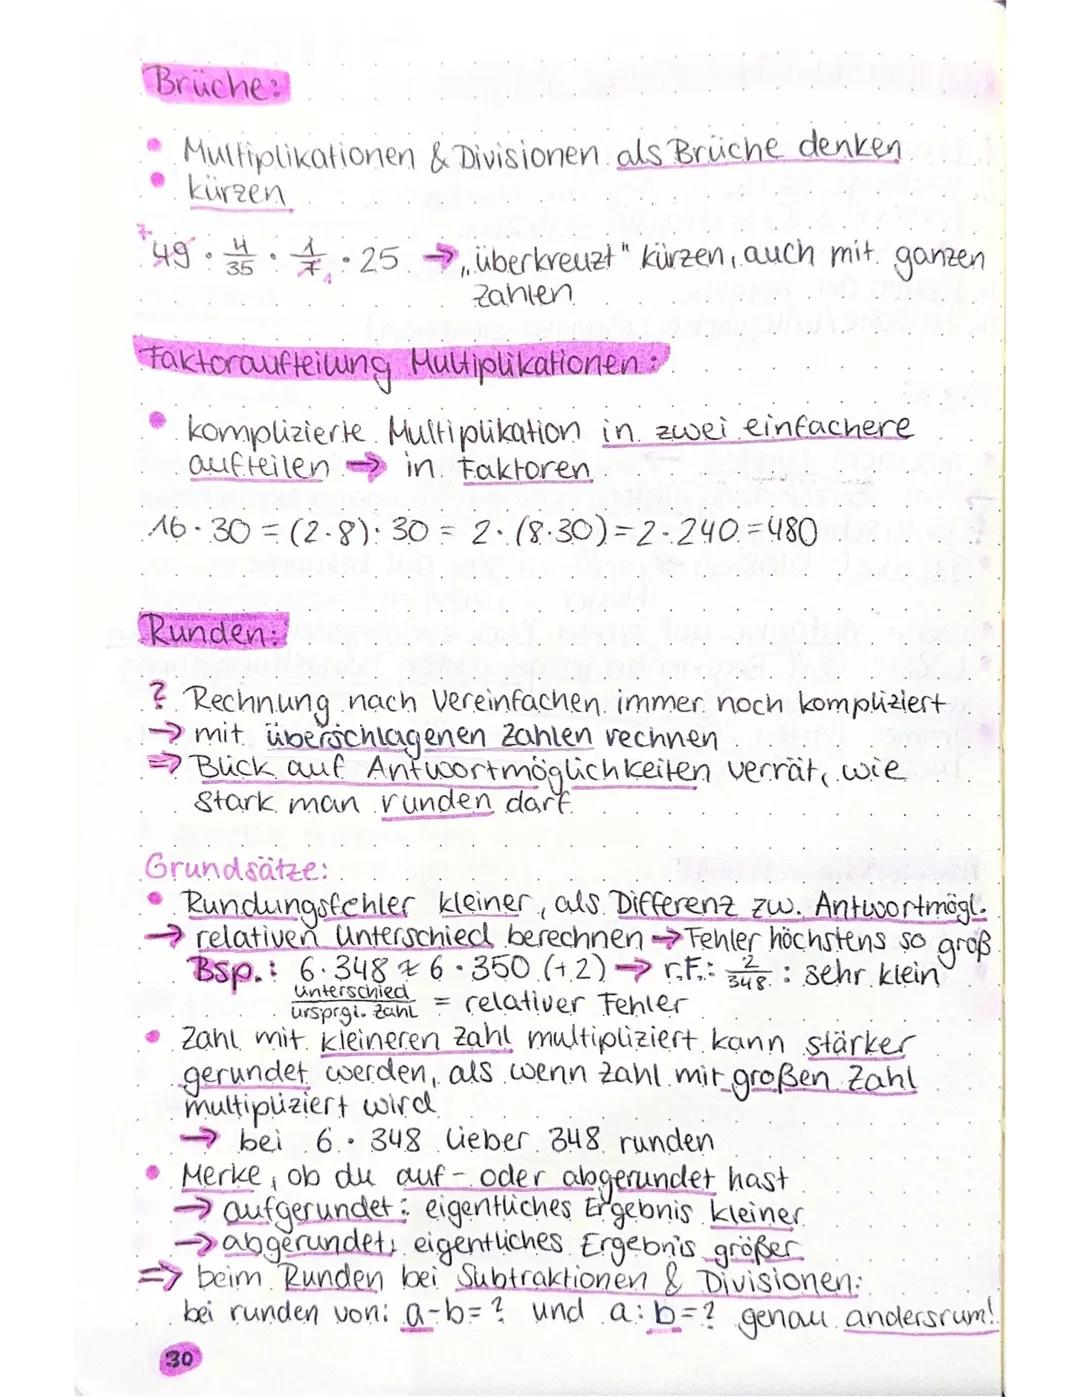 Brüche:
• Multiplikationen & Divisionen als Brüche denken
• kürzen
7 49 · 4/35 · 1/7 1 · 25 → „überkreuzt" kürzen, auch mit ganzen
Zahlen
Faktoraufteilung Multiplikationen:
• komplizierte Multiplikation in zwei einfachere
aufteilen → in Faktoren
16 · 30 = (2 · 8) · 30 = 2 · (8 · 30) = 2 · 240 = 480
Runden:
? Rechnung nach Vereinfachen immer noch kompliziert
→ mit überschlagenen Zahlen rechnen
⇒ Blick auf Antwortmöglichkeiten verrät, wie
stark man runden darf
Grundsätze:
• Rundungsfehler kleiner, als Differenz zw. Antwortmögl.
→ relativen Unterschied berechnen → Fehler höchstens so groß
Bsp.: 6 · 348 ≈ 6 · 350 (+2) → r.F.: 2/348 : sehr klein
Unterschied/ursprgl. Zahl = relativer Fehler
• Zahl mit kleineren Zahl multipliziert kann stärker
gerundet werden, als wenn Zahl mit großen Zahl
multipliziert wird
→ bei 6 · 348 lieber 348 runden
• Merke, ob du auf- oder abgerundet hast
→ aufgerundet: eigentliches Ergebnis kleiner
→ abgerundet: eigentliches Ergebnis größer
⇒ beim Runden bei Subtraktionen & Divisionen:
bei runden von: a-b=? und a:b=? genau andersrum!
30